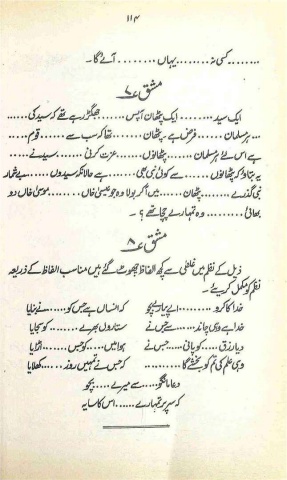 ۱۱۴
........ کسی نہ ........ یہاں ........ آئے گا۔
مشق ۷
ایک سید ...... ایک پٹھان آپس ...... جھگڑ رہے تھے کہ سید کی ......
...... ہر مسلمان ...... فرض ہے۔ پٹھان ...... تھا کہ سب سے ...... قوم ......
ہے اس لئے ہر مسلمان ...... پٹھانوں ...... عزت کرنی ...... سید نے ......
یہ بتاؤ کہ پٹھانوں ...... سے کوئی نبی بھی ...... ہے حالانکہ سیدوں ...... بے شمار
نبی گذرے ...... پٹھان ...... میں آکر بولا وہ جو عیسیٰ خاں ...... موسیٰ خاں دو
بھائی ...... وہ تمہارے چچا تھے؟ ۔
مشق ۸
ذیل کے نظم میں غلطی سے کچھ الفاظ چھوٹ گئے ہیں مناسب الفاظ کے ذریعہ
نظم کو مکمل کریئے۔
خدا کا کرو ...... اے پیارے بچو کہ انساں ہے جس کو ...... نے بنایا
خدا ہے وہی چاند ...... سے جس نے ستاروں بھرے ...... کو سجایا
دیا رزق ...... کو پانی ...... جس نے ہوا میں ...... کو جس ...... اڑایا
وہی علم کی تم کو بخشے گا ...... کہ جس نے تمہیں روز ...... کھلایا
دعا مانگو ...... سے میرے ...... بچو
کہ سر پر تمہارے ...... اس کا سایہ